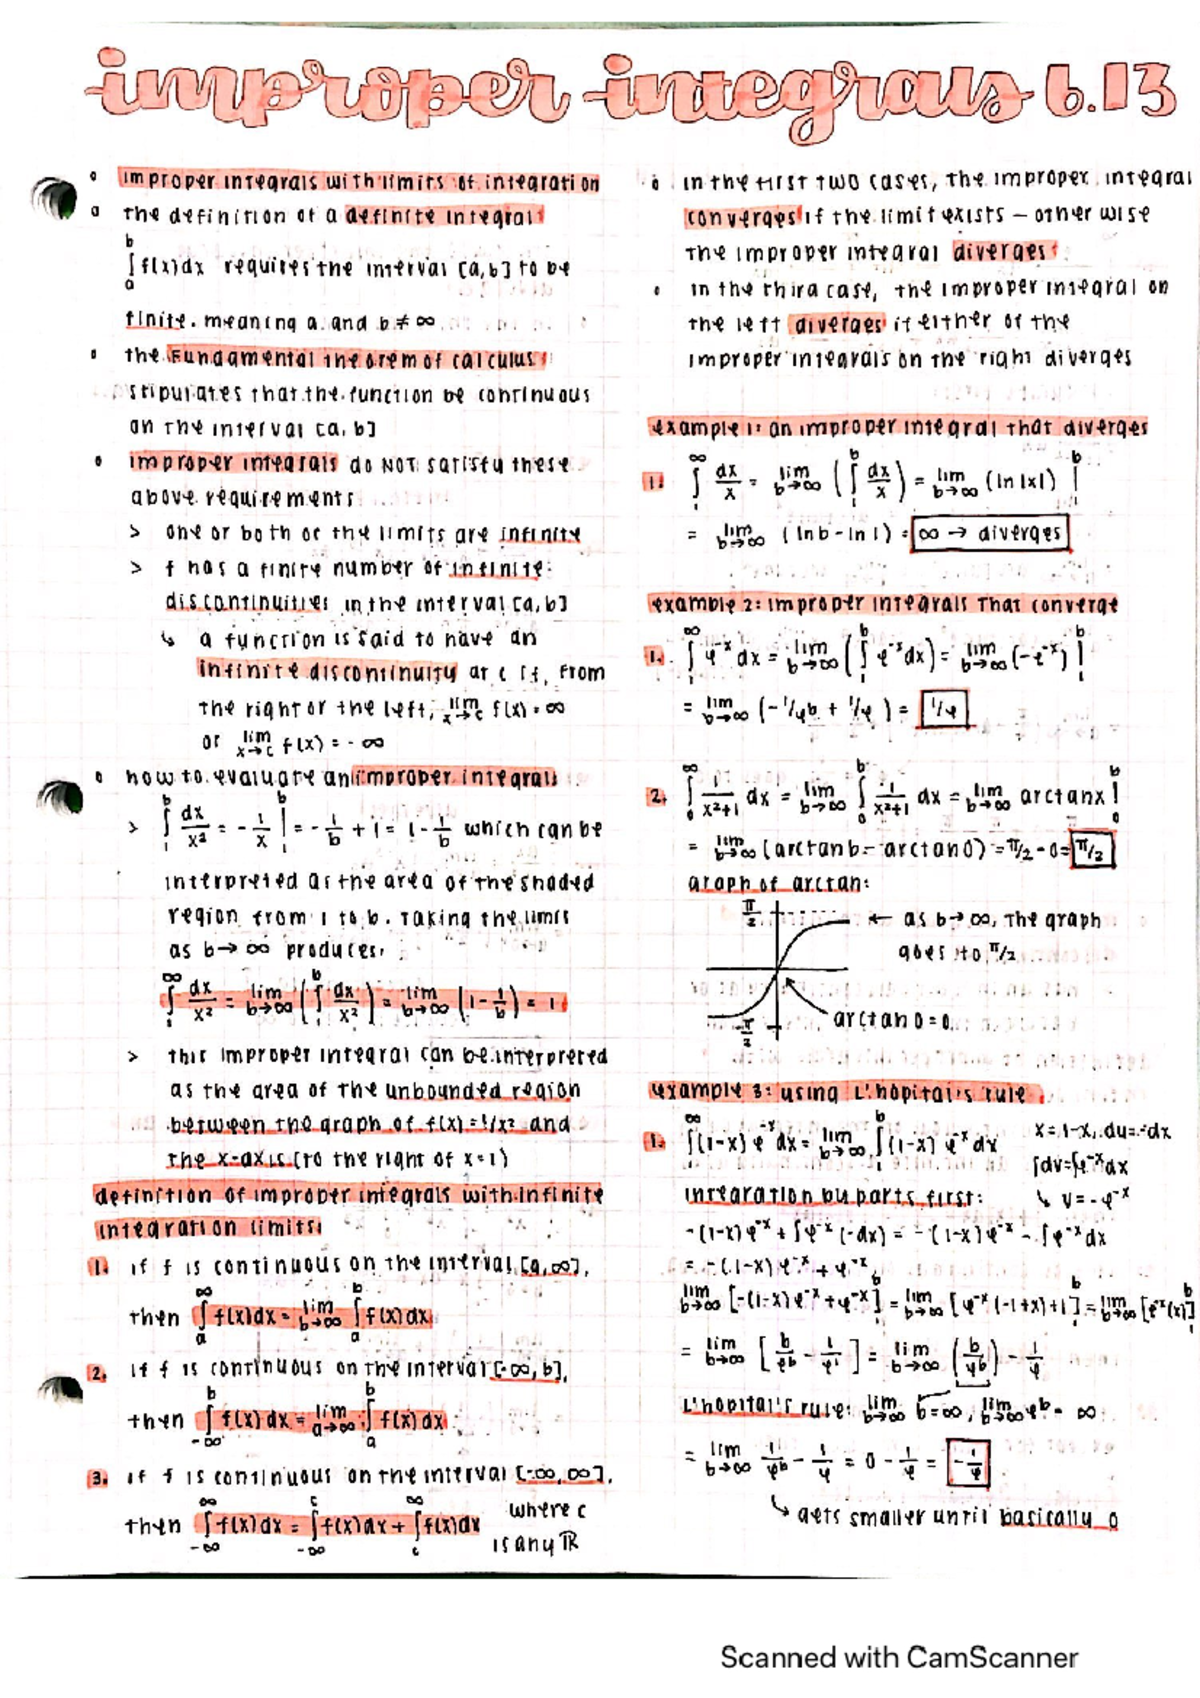 improper integrals 6.13
improper integrals with limits of integration
the definition of a definite integral
∫_a^b f(x)dx requires the interval [a,b] to be
finite. meaning a and b ≠ ∞
the Fundamental theorem of calculus
stipulates that the function be continuous
on the interval [a,b]
improper integrals do NOT satisfy these
above requirements
> one or both of the limits are infinite
> f has a finite number of infinite
discontinuities in the interval [a,b]
↳ a function is said to have an
infinite discontinuity at c if, from
the right or the left, lim x→c f(x) = ∞
or lim x→c f(x) = -∞
how to evaluate an improper integral
> ∫_1^b dx/x² = -1/x |_1^b = -1/b + 1 = 1 - 1/b which can be
interpreted as the area of the shaded
region from 1 to b. Taking the limit
as b→∞ produces,
∫_1^∞ dx/x² = lim b→∞ (∫_1^b dx/x²) = lim b→∞ (1 - 1/b) = 1
> this improper integral can be interpreted
as the area of the unbounded region
between the graph of f(x) = 1/x² and
the x-axis (to the right of x=1)
definition of improper integrals with infinite
integration limits:
1. if f is continuous on the interval [a,∞],
then ∫_a^∞ f(x)dx = lim b→∞ ∫_a^b f(x)dx
2. if f is continuous on the interval [-∞,b],
then ∫_-∞^b f(x)dx = lim a→∞ ∫_a^b f(x)dx
3. if f is continuous on the interval [-∞,∞],
then ∫_-∞^∞ f(x)dx = ∫_-∞^c f(x)dx + ∫_c^∞ f(x)dx where c
is any ℝ
in the first two cases, the improper integral
converges if the limit exists – otherwise
the improper integral diverges
in the third case, the improper integral on
the left diverges if either of the
improper integrals on the right diverges
example 1: an improper integral that diverges
1. ∫_1^∞ dx/x = lim b→∞ (∫_1^b dx/x) = lim b→∞ (ln|x|) |_1^b
= lim b→∞ (ln b - ln 1) = ∞ → diverges
example 2: improper integrals that converge
1. ∫_1^∞ e^-x dx = lim b→∞ (∫_1^b e^-x dx) = lim b→∞ (-e^-x) |_1^b
= lim b→∞ (-1/e^b + 1/e) = 1/e
2. ∫_0^∞ 1/x²+1 dx = lim b→∞ ∫_0^b 1/x²+1 dx = lim b→∞ arctanx |_0^b
= lim b→∞ (arctan b - arctan 0) = π/2 - 0 = π/2
graph of arctan:
π/2
← as b→∞, the graph
goes to π/2
arctan 0 = 0
-π/2
example 3: using L'hopital's rule
1. ∫_1^∞ (1-x) e^-x dx = lim b→∞ ∫_1^b (1-x) e^-x dx
x = 1-x, du = -dx
∫dv = ∫e^-x dx
↳ v = -e^-x
integration by parts first:
-(1-x)e^-x + ∫e^-x (-dx) = -(1-x)e^-x - ∫e^-x dx
= -(1-x)e^-x + e^-x
lim b→∞ [-(1-x)e^-x + e^-x]_1^b = lim b→∞ [e^-x (-1+x)+1]_1^b = lim b→∞ [e^-x(x)]_1^b
= lim b→∞ [b/e^b - 1/e^1] = lim b→∞ (b/e^b) - 1/e
L'hopital's rule: lim b→∞ b = ∞, lim b→∞ e^b = ∞
= lim b→∞ 1/e^b - 1/e = 0 - 1/e = -1/e
↳ gets smaller until basically 0
Scanned with CamScanner